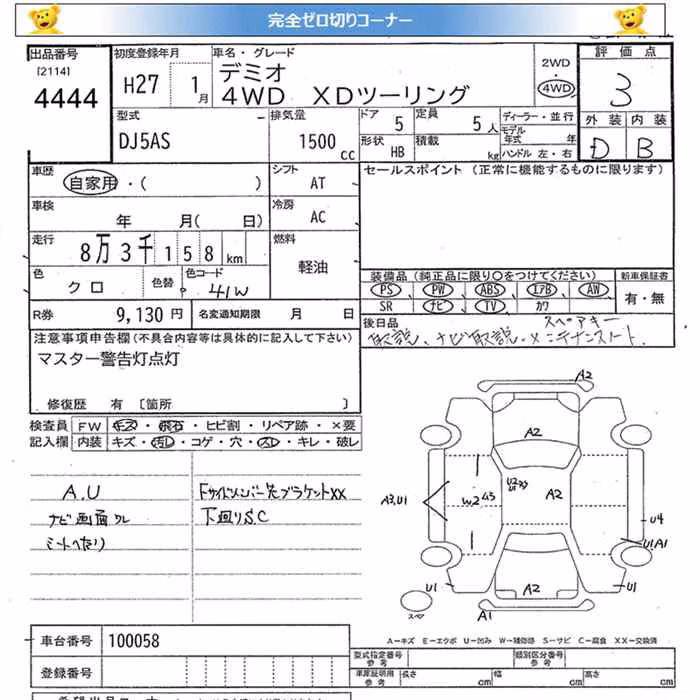 完全ゼロ切りコーナー
出品番号 初度登録年月 車名・グレード 評価点
[2114] 4444
H27 1月
デミオ
4WD XDツーリング
2WD ・ 4WD
3
型式 排気量 ドア 定員 ディーラー・並行 外装 内装
DJ5AS 1500cc 5 5人 モデル年式 年 D B
形状 HB 積載 kg ハンドル 左・右
車歴 自家用・( ) シフト AT セールスポイント(正常に機能するものに限ります)
車検 年 月( 日) 冷房 AC
走行 8万3千158km 燃料 軽油
色 クロ 色替 色コード 41W 装備品(純正品に限り○をつけてください) 新車保証書
PS PW ABS エアB AW 有・無
SR ナビ TV カワ
R券 9,130円 名変通知期限 月 日
後日品 スペアキー
取説、ナビ取説、メンテナンスノート
注意事項申告欄(不具合内容等は具体的に記入して下さい)
マスター警告灯点灯
修復歴 有 〔箇所 〕
検査員 FW キズ・飛石・ヒビ割・リペア跡・×要
記入欄 内装 キズ・汚レ・コゲ・穴・スレ・キレ・破レ
A.U
ナビ画面ワレ
シートへたり
Fサイドメンバー先ブラケットXX
下廻りS.C
A2
A2
A3,U1 W2 U2 U1 A2 U4
U1A1
U1 A2 U1
スペア A1
A−キズ E−エクボ U−凹み W−補修跡 S−サビ C−腐食 XX−交換済
車台番号 100058 型式指定番号 参考 類別区分番号 参考
登録番号 車庫証明用 参考 長さ cm 幅 cm 高さ cm